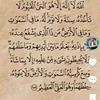 ٱللَّهُ لَآ إِلَٰهَ إِلَّا هُوَ ٱلْحَىُّ ٱلْقَيُّومُ لَا
تَأْخُذُهُۥ سِنَةٌ وَلَا نَوْمٌ لَّهُۥ مَا فِى ٱلسَّمَٰوَٰتِ
وَمَا فِى ٱلْأَرْضِ مَن ذَا ٱلَّذِى يَشْفَعُ عِندَهُۥٓ
إِلَّا بِإِذْنِهِۦ يَعْلَمُ مَا بَيْنَ أَيْدِيهِمْ وَمَا خَلْفَهُمْ
وَلَا يُحِيطُونَ بِشَىْءٍ مِّنْ عِلْمِهِۦٓ إِلَّا بِمَا شَآءَ
وَسِعَ كُرْسِيُّهُ ٱلسَّمَٰوَٰتِ وَٱلْأَرْضَ وَلَا يَـُٔودُهُۥ
حِفْظُهُمَا وَهُوَ ٱلْعَلِىُّ ٱلْعَظِيمُ